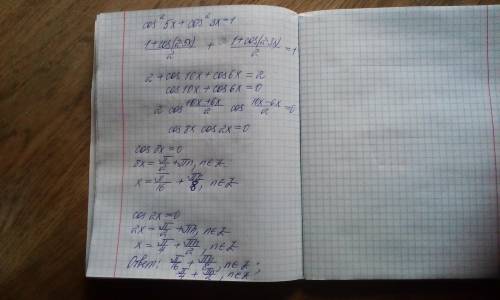 cos² 5x + cos² 3x = 1
(1+cos(2·5x))/2 + (1+cos(2·3x))/2 = 1
2 + cos 10x + cos 6x = 2
cos 10x + cos 6x = 0
2 cos (10x+6x)/2 cos (10x-6x)/2 = 0
cos 8x cos 2x = 0
cos 8x = 0
8x = π/2 + πn, n∈Z
x = π/16 + πn/8, n∈Z
cos 2x = 0
2x = π/2 + πn, n∈Z
x = π/4 + πn/2, n∈Z
Ответ: π/16 + πn/8, n∈Z;
π/4 + πn/2, n∈Z